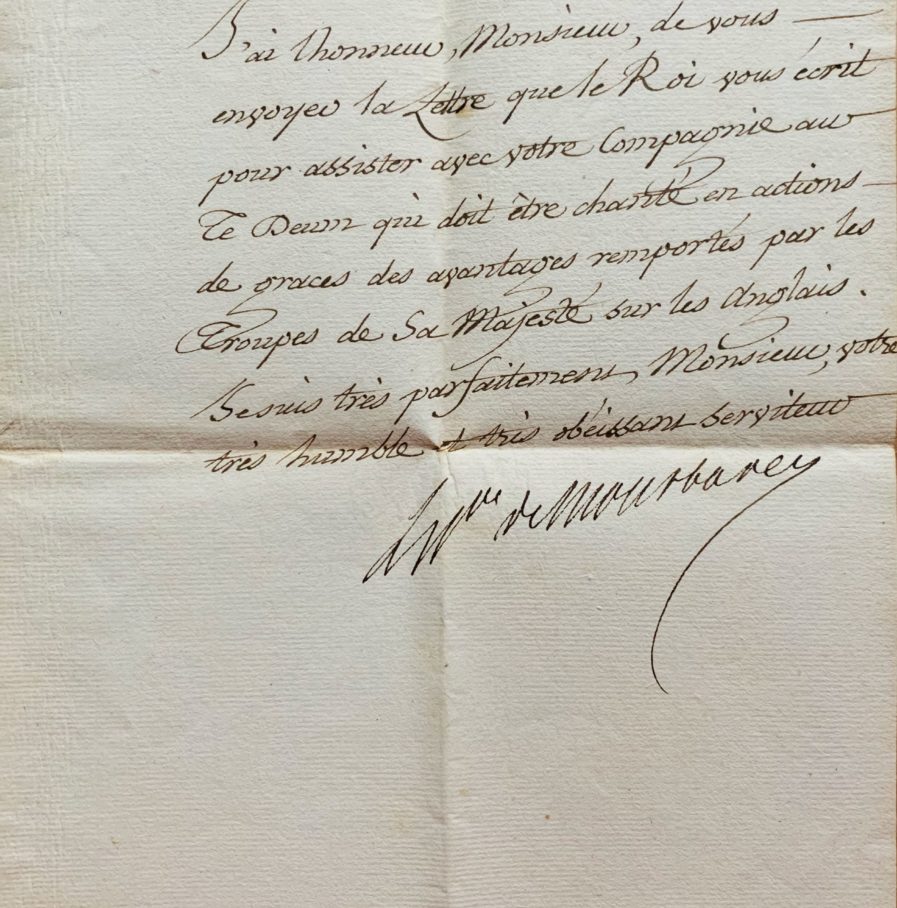 J'ai l'honneur, Monsieur, de vous
envoyer la Lettre que le Roi vous écrit
pour assister avec votre Compagnie au
Te Deum qui doit être chanté en actions
de graces des avantages remportés par les
Troupes de Sa Majesté sur les Anglais.
Je suis très parfaitement, Monsieur, votre
très humble et très obéissant serviteur
Le Pce de Montbarey